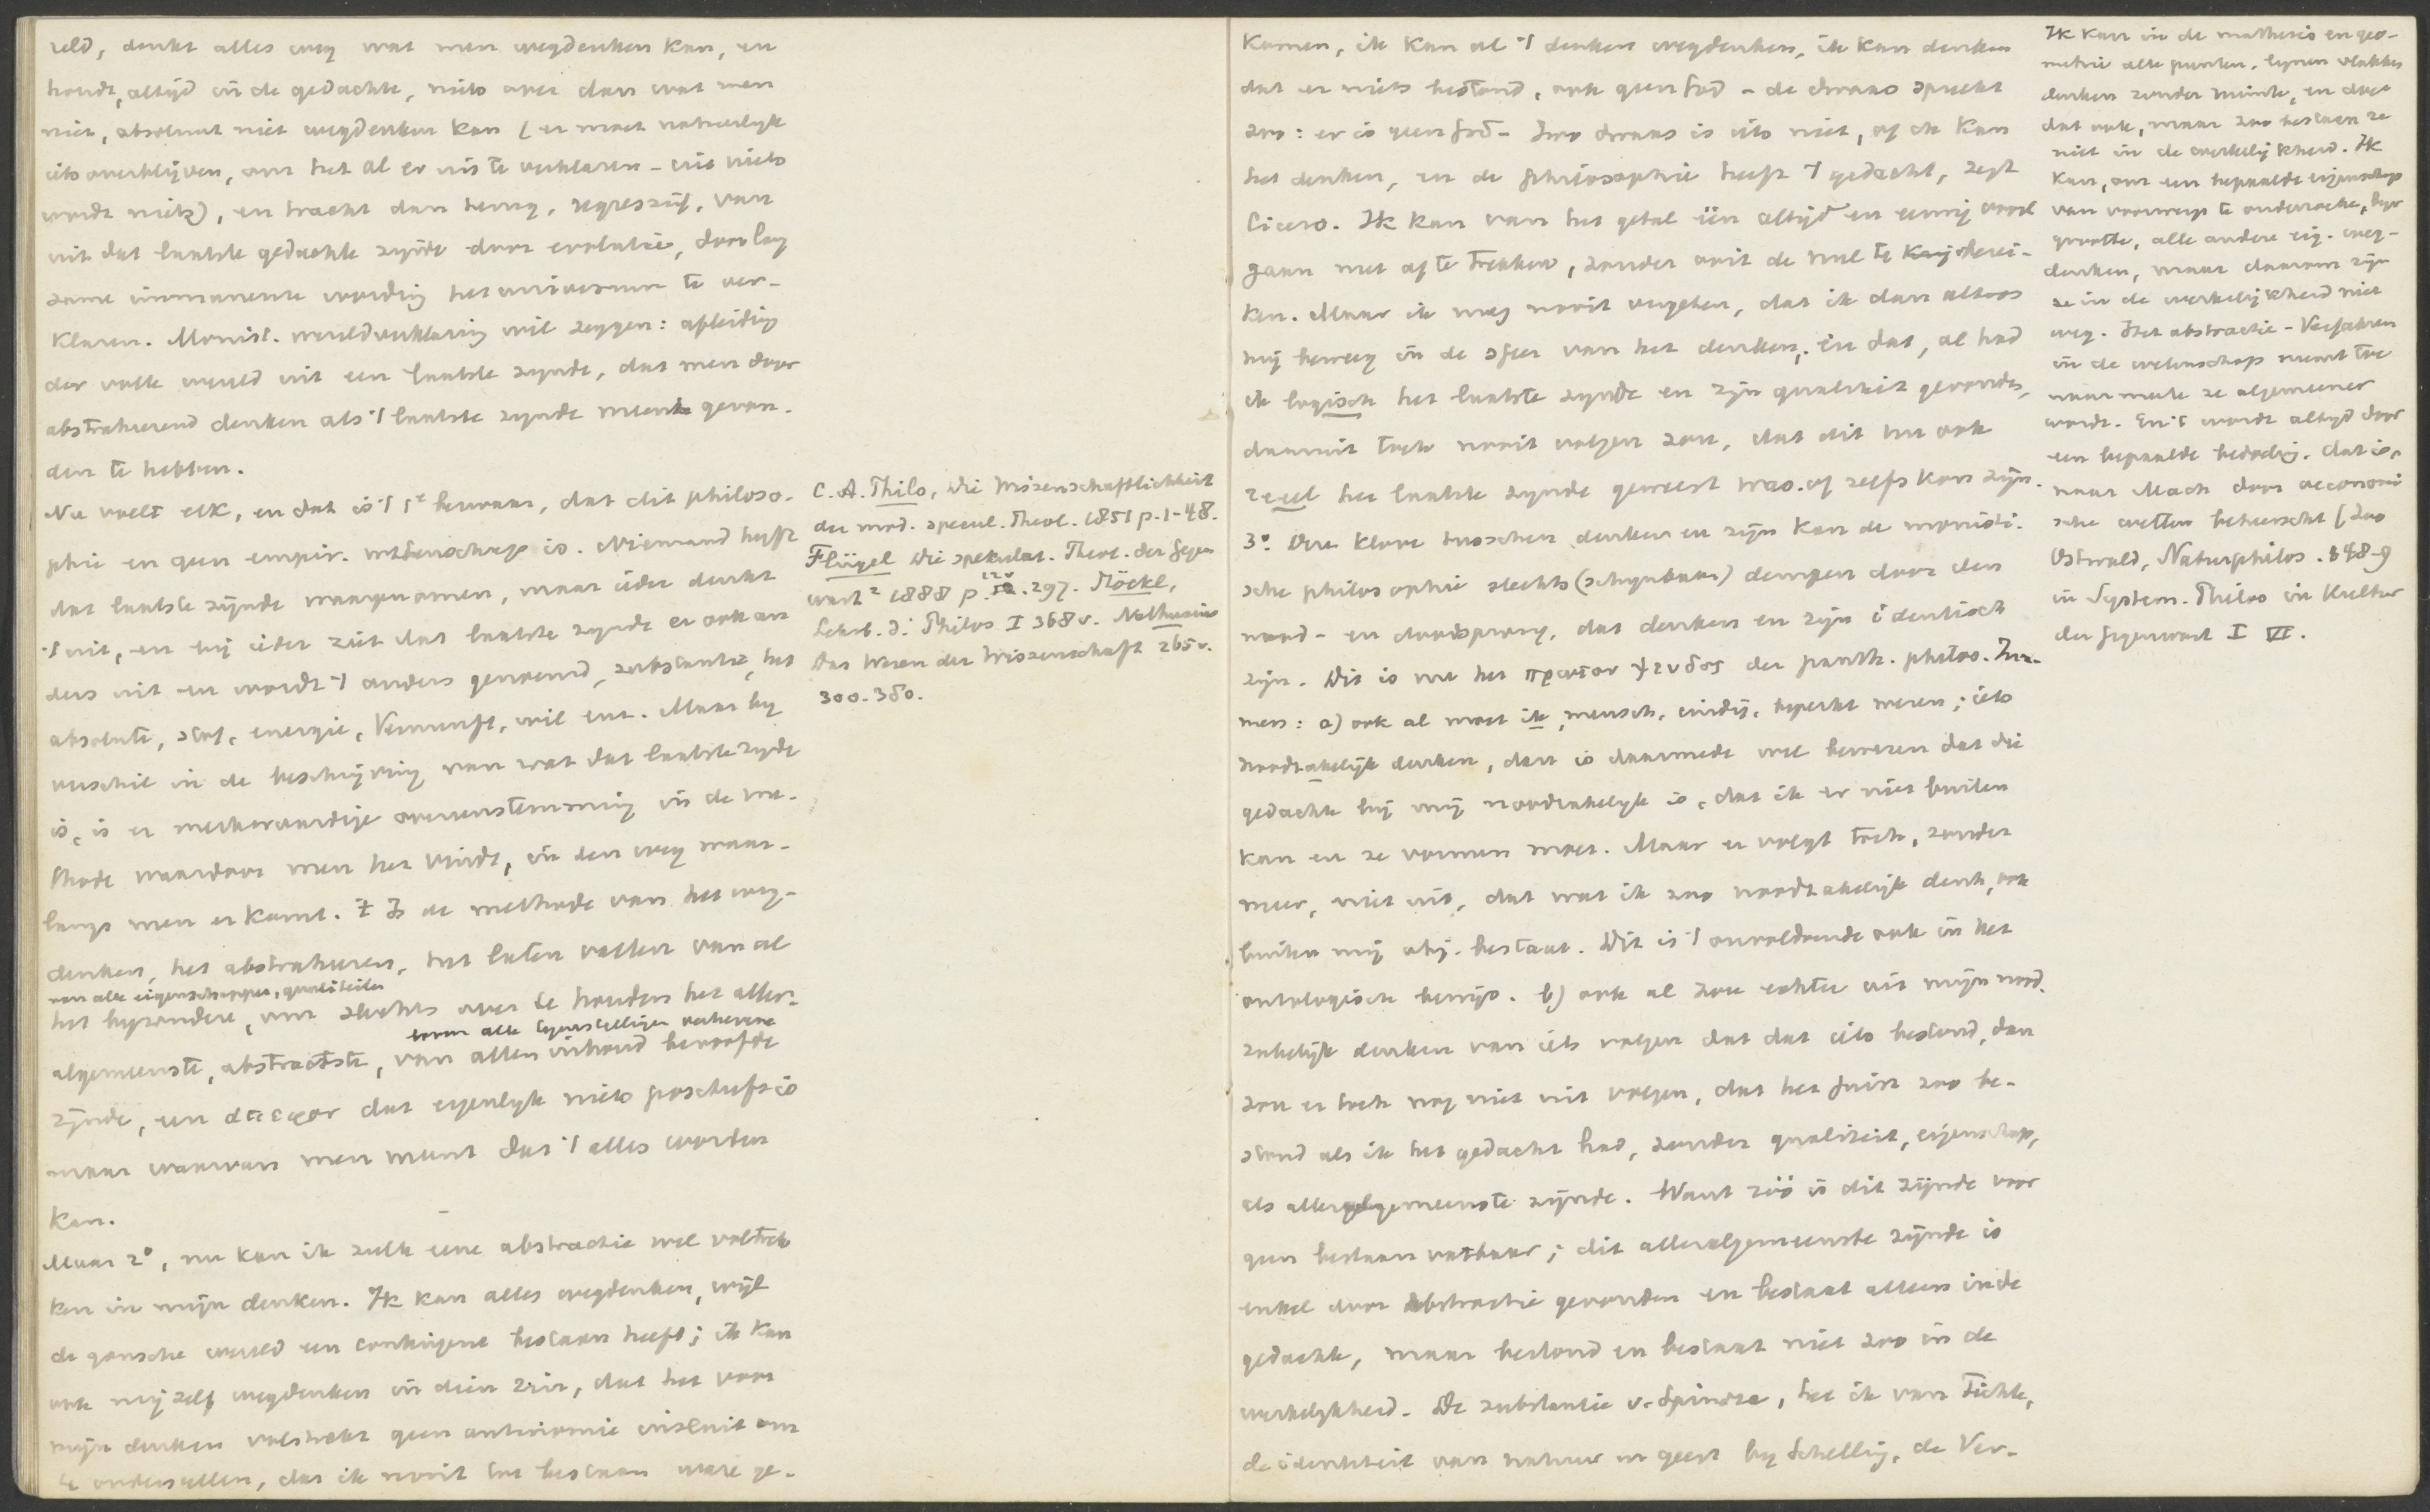 reld, denkt alles weg wat men wegdenken kan, en
houdt, altijd in de gedachte, niets over dan wat men
niet, absoluut niet wegdenken kan (er moet natuurlijk
iets overblijven, om het al er uit te verklaren - uit niets
wordt niets), en tracht dan terug, regressief, van
uit dat laatste gedachte zijnde door evolutie, door lang
zame immanente wording het universum te ver-
klaren. Monist. wereldverklaring wil zeggen: afleiding
der volle wereld uit een laatste zijnde, dat men door
abstraheerend denken als 't laatste zijnde meent gevon-
den te hebben.
Nu voelt elk, en dat is 't 1e bezwaar, dat dit philoso-
phie en geen empir. wetenschap is. Niemand heeft
dat laatste zijnde waargenomen, maar ieder denkt
't uit, en bij ieder ziet dat laatste zijnde er ook an
ders uit en wordt 't anders genoemd, substantie, het
absolute, stof, energie, Vernunft, wil enz. Maar bij
verschil in de beschrijving van wat dat laatste zijnde
is, is er merkwaardige overeenstemming in de me-
thode waardoor men het vindt, in den weg waar-
langs men er komt. 't Is de methode van het weg-
denken, het abstraheren, het laten vallen van al
van alle eigenschappen, qualiteiten
het byzondere, om slechts over te houden het aller-
boven alle tegenstellingen verhevene
algemeenste, abstractste, van allen inhoud beroofde
zijnde, een ἄπειρον dat eigenlyk niets positiefs is
maar waarvan men meent dat 't alles worden
kan.
Maar 2°, nu kan ik zulk eene abstractie wel voltrek
ken in mijn denken. Ik kan alles wegdenken, wijl
de gansche wereld een contingent bestaan heeft; ik kan
ook mijzelf wegdenken in dien zin, dat het voor
mijn denken volstrekt geen antinomie insluit om
te onderstellen, dat ik nooit tot bestaan ware ge-
C. A. Thilo, Die Wissenschaftlichkeit
der mod. specul. Theol. 1851 p. 1-48.
Flügel Die spekulat. Theol. der Gegen
wart² 1888 p. 297. Stöckl,
Lehrb. d. Philos I 368 v. Nathusius
Das Wesen der Wissenschaft 265 v.
300. 380.
komen, ik kan al 't denken wegdenken, ik kan denken
dat er niets bestond, ook geen God - de dwaas spreekt
zoo: er is geen God - Zoo dwaas is iets niet, of ik kan
het denken, en de philosophie heeft 't gedacht, zegt
Cicero. Ik kan van het getal één altijd en eeuwig voort
gaan met af te trekken, zonder ooit de nul te berei-
ken. Maar ik mag nooit vergeten, dat ik dan altoos
mij beweeg in de sfeer van het denken; en dat, al had
ik logisch het laatste zijnde en zijn qualiteit gevonden,
daaruit toch nooit volgen zou, dat dit nu ook
reeel het laatste zijnde geweest was of zelfs kon zijn.
3°. Den kloof tusschen denken en zijn kan de monisti-
sche philosophie slechts (schynbaar) dempen door den
nood- en doodsprong, dat denken en zijn identisch
zijn. Dit is nu het πρωτον ψευδος der panth. philos. Im-
mers: a) ook al moet ik, mensch, eindig, beperkt wezen, iets
noodzakelijk denken, dan is daarmede wel bewezen dat die
gedachte bij mij noodzakelyk is, dat ik er niet buiten
kan en ze vormen moet. Maar er volgt toch, zonder
meer, niet uit, dat wat ik zoo noodzakelijk denk, ook
buiten mij obj. bestaat. Dit is 't onvoldoende ook in het
ontologisch bewijs. b) ook al zou echter uit mijn nood-
zakelijk denken van iets volgen dat dat iets bestond, dan
zou er toch nog niet uit volgen, dat het juist zoo be-
stond als ik het gedacht had, zonder qualiteit, eigenschap,
als allergemeenste zijnde. Want zóó is dit zijnde voor
geen bestaan vatbaar; dit alleralgemeenste zijnde is
enkel door abstractie gevonden en bestaat alleen in de
gedachte, maar bestond en bestaat niet zoo in de
werkelykheid. De substantie v. Spinoza, het ik van Fichte,
de identiteit van natuur en geest by Schelling, de Ver-
Ik kan in de mathesis en geo-
metrie alle punten, lynen vlakken
denken zonder ruimte, en doe
dat ook, maar zoo bestaan ze
niet in de werkelijkheid. Ik
kan, om een bepaalde eigenschap
van voorwerp te onderzoeken, bijv
grootte, alle andere eig. weg-
denken, maar daarom zijn
ze in de werkelijkheid niet
weg. Het abstractie-Verfahren
in de wetenschap neemt toe
naarmate ze algemeener
wordt. En 't wordt altyd door
een bepaalde bedoeling, dat is,
naar Mach door oeconomi
sche wetten beheerscht (zoo
Ostwald, Naturphilos. 148-9
in System. Philos in Kultur
der Gegenwart I VI.